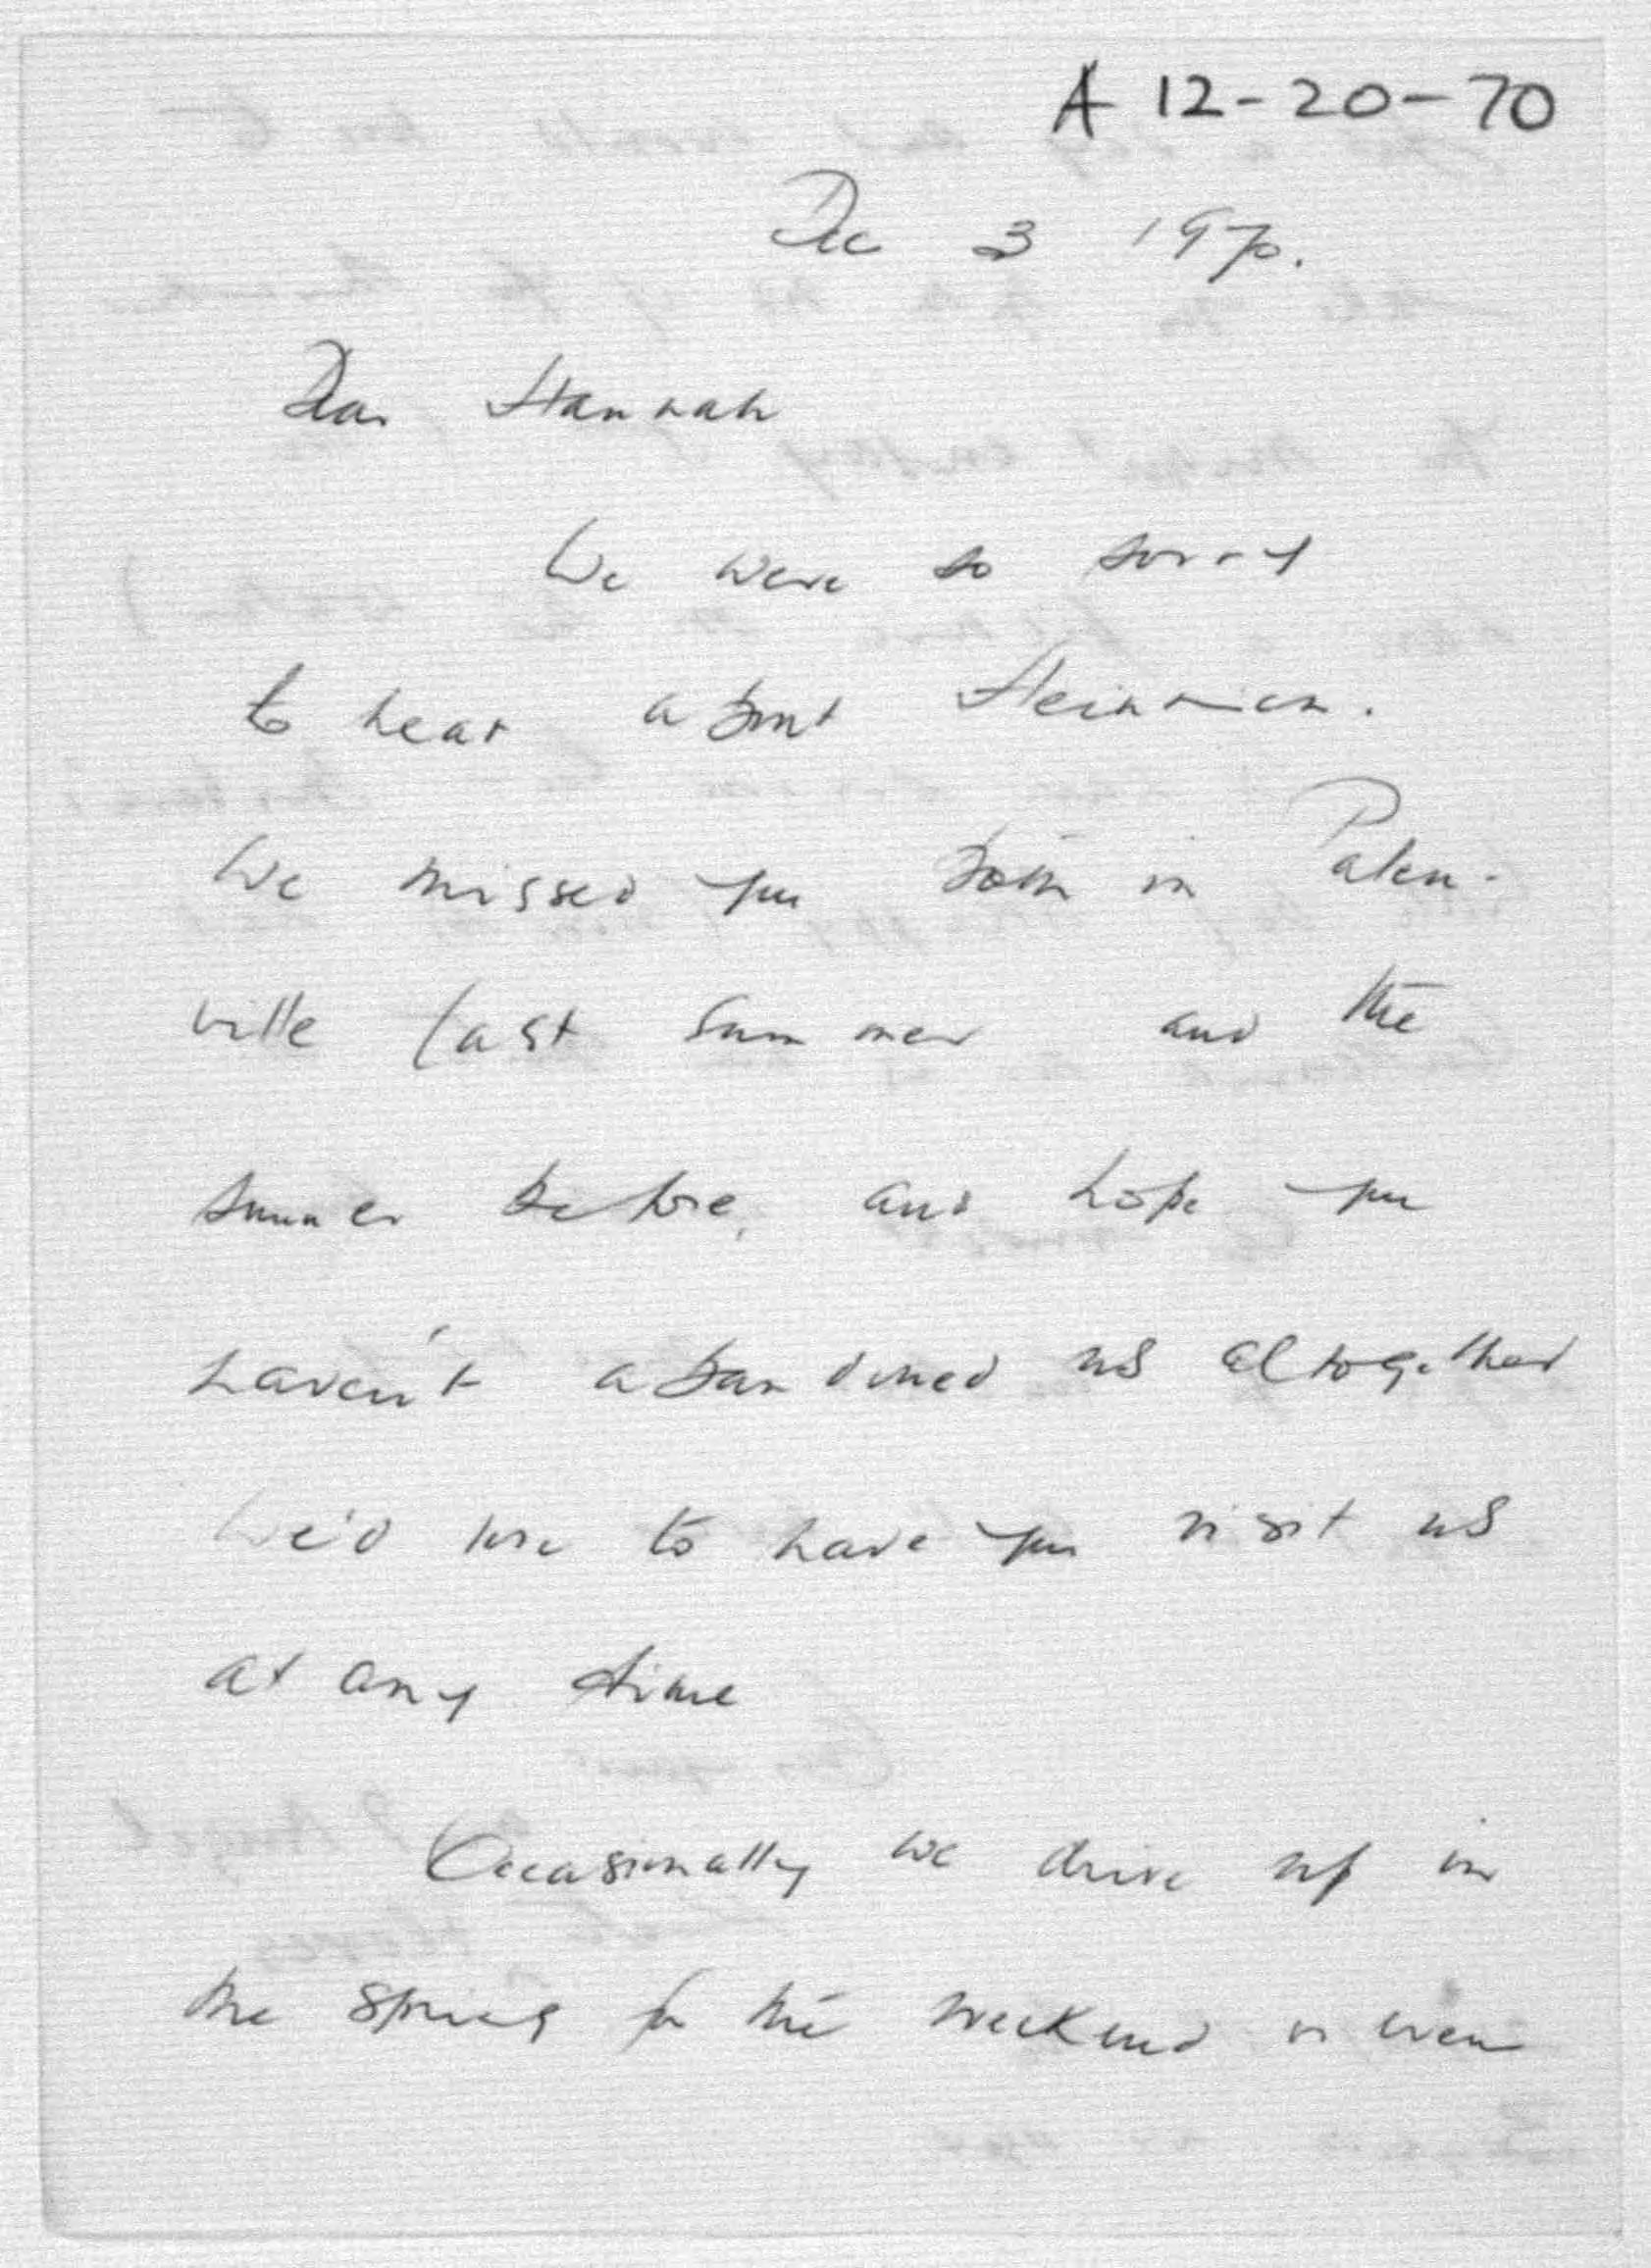 A 12-20-70
Dec 3 1970.
Dear Hannah
We were so sorry
to hear about Heinrich.
We missed you both in Palen-
ville last summer and the
summer before, and hope you
haven't abandoned us altogether
We'd love to have you visit us
at any time
Occasionally we drive up in
the spring for the weekend or even